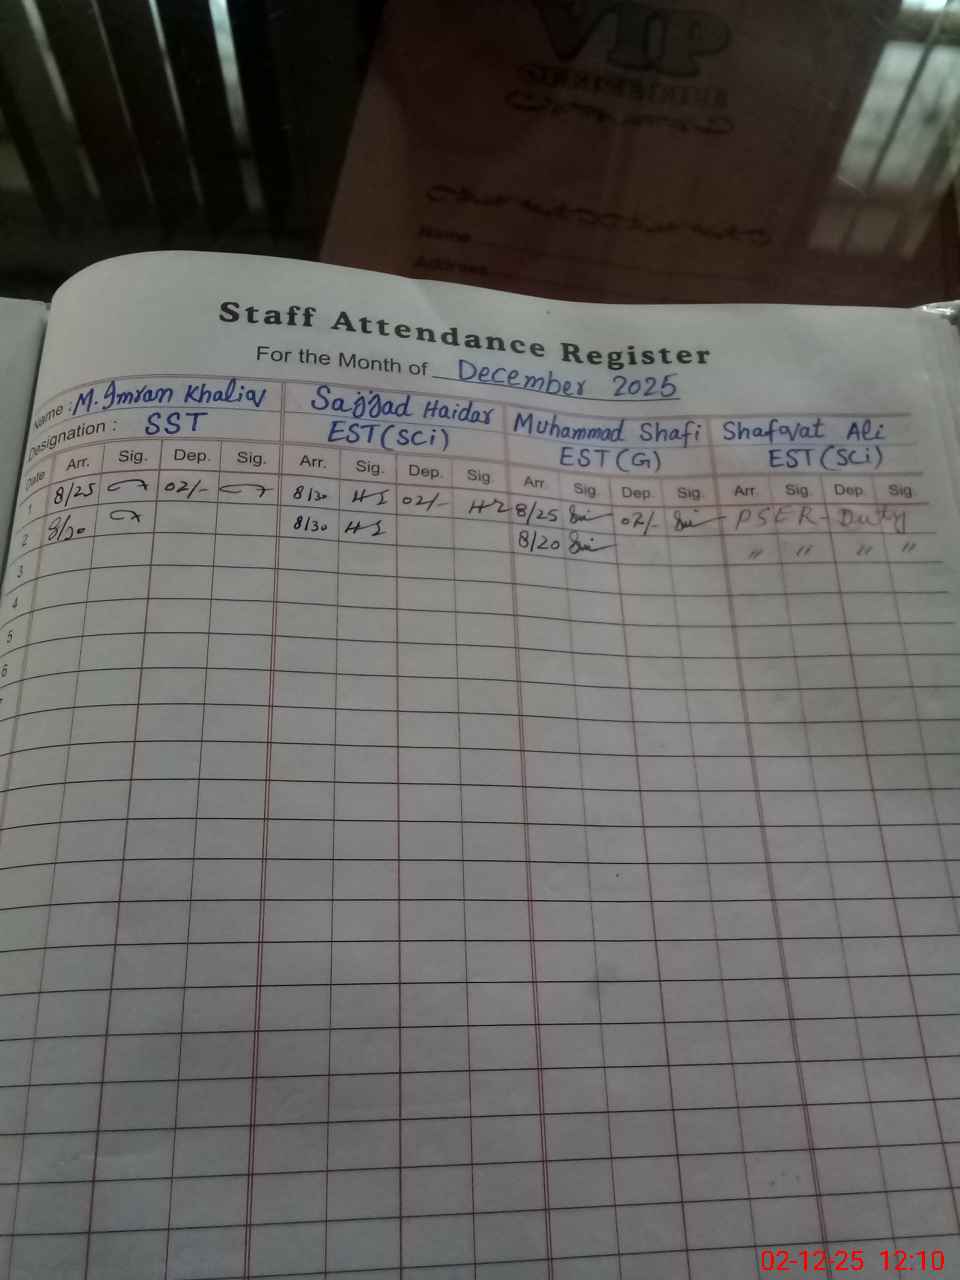 VIP
Name
Address
Staff Attendance Register
For the Month of December 2025
Name : M. Imran Khaliq Sajjad Haidar Muhammad Shafi Shafqat Ali
Designation : SST EST(SCi) EST(G) EST(SCi)
Date Arr. Sig. Dep. Sig. Arr. Sig. Dep. Sig. Arr. Sig. Dep. Sig. Arr. Sig. Dep. Sig.
1 8/25 02/- 8/30 02/- 8/25 02/- PSER - Duty
2 8/30 8/30 8/20 " " " "
3
4
5
6
02-12-25 12:10